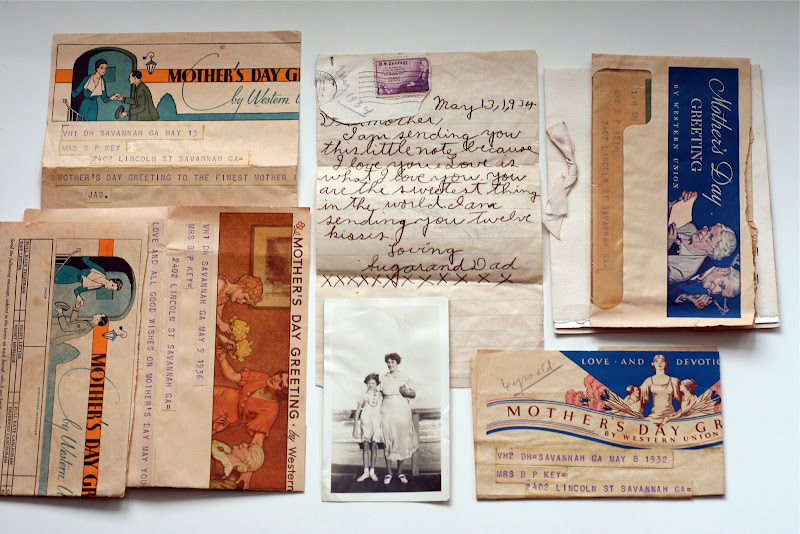 MOTHER'S DAY GR
by Western U
VH1 DH SAVANNAH GA MAY 13
MRS B P KEY
2402 LINCOLN ST SAVANNAH GA=
MOTHER'S DAY GREETING TO THE FINEST MOTHER I
JAB.
U.S. POSTAGE
May 13, 1934
Dear mother,
I am sending you
this little note, because
I love you. Love is
what I love you. You
are the sweetest thing
in the world. I am
sending you twelve
kisses.
Loving
Sugar and Dad
XXXXXXXXXXXX
Mother's Day
GREETING
BY WESTERN UNION
MRS B P KEY=
2402 LINCOLN ST SAVANNAH GA=
MOTHER'S DAY GR
by Western U
VH1 DH SAVANNAH GA MAY 9 1936
MRS B P KEY=
2402 LINCOLN ST SAVANNAH GA=
LOVE AND ALL GOOD WISHES ON MOTHER'S DAY MAY YOUR
MOTHER'S DAY GREETING · by Western
LOVE · AND · DEVOTIO
MOTHER'S DAY GR
BY WESTERN UNION
VH2 DH=SAVANNAH GA MAY 8 1932
MRS B P KEY=
2402 LINCOLN ST SAVANNAH GA=